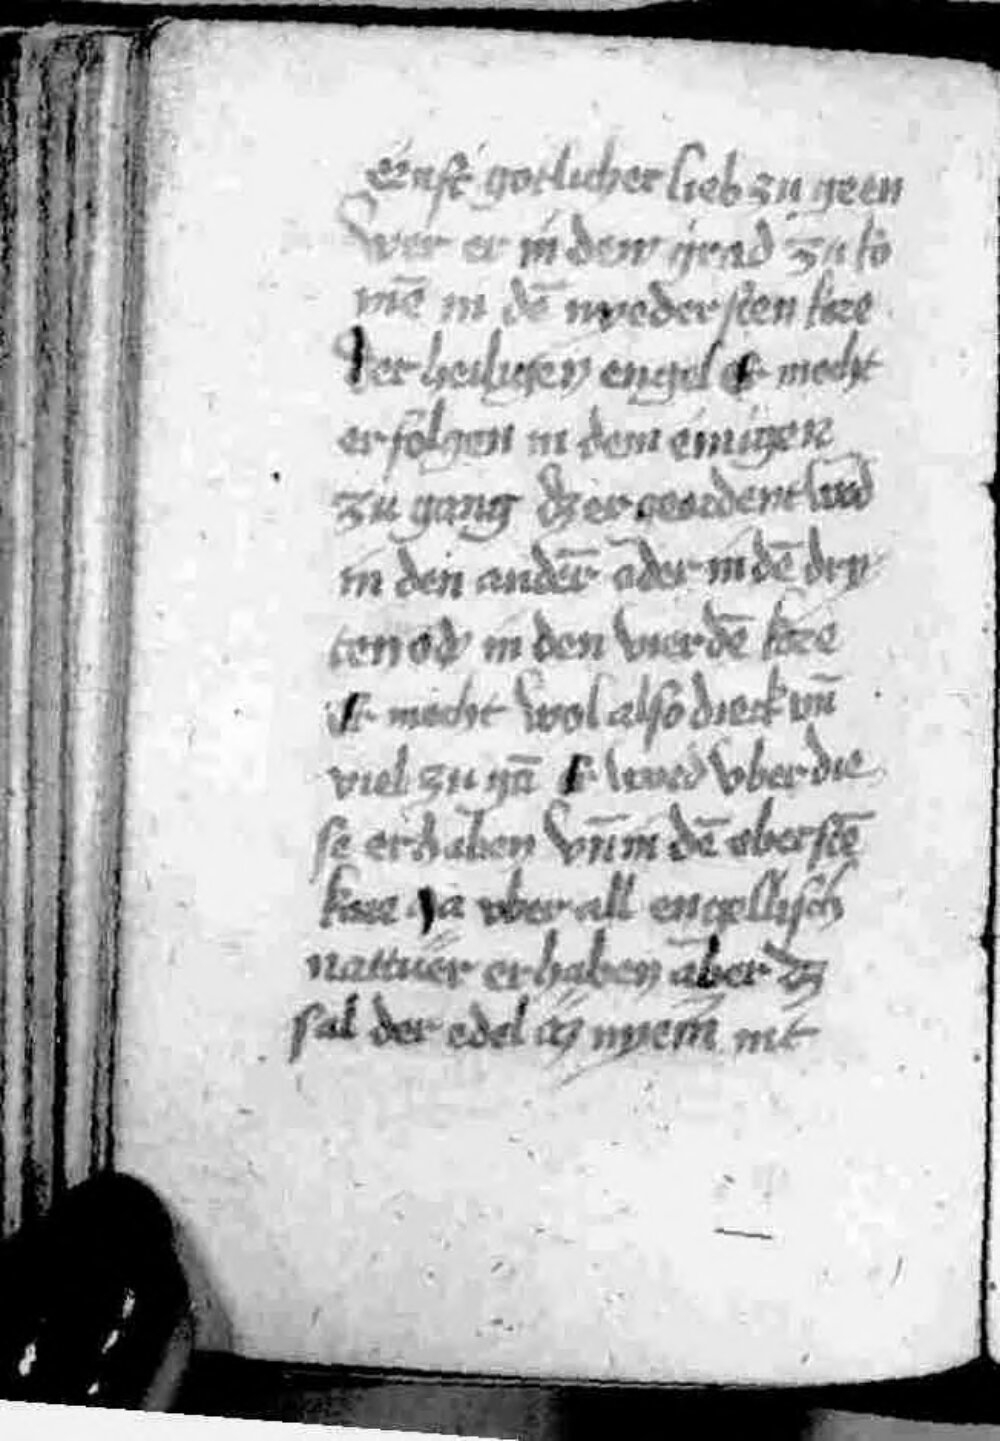 ernst gotlicher lieb zu geen
wer er in den grad zu ko
mē in dē nyedersten kore
Der heiligen engel Er mecht
erfolgen in dem einigen
zu gang dz er geordent wird
in den andēr ader in dē dry
ten od in den vierdē kore
Er mecht wol also dick vn̄
viel zu gā Er wird vber die
se erhaben vn̄ in dē obersten
kore Ja vber all engellisch
nattuer erhaben aber dz
sal der edel nyem mit